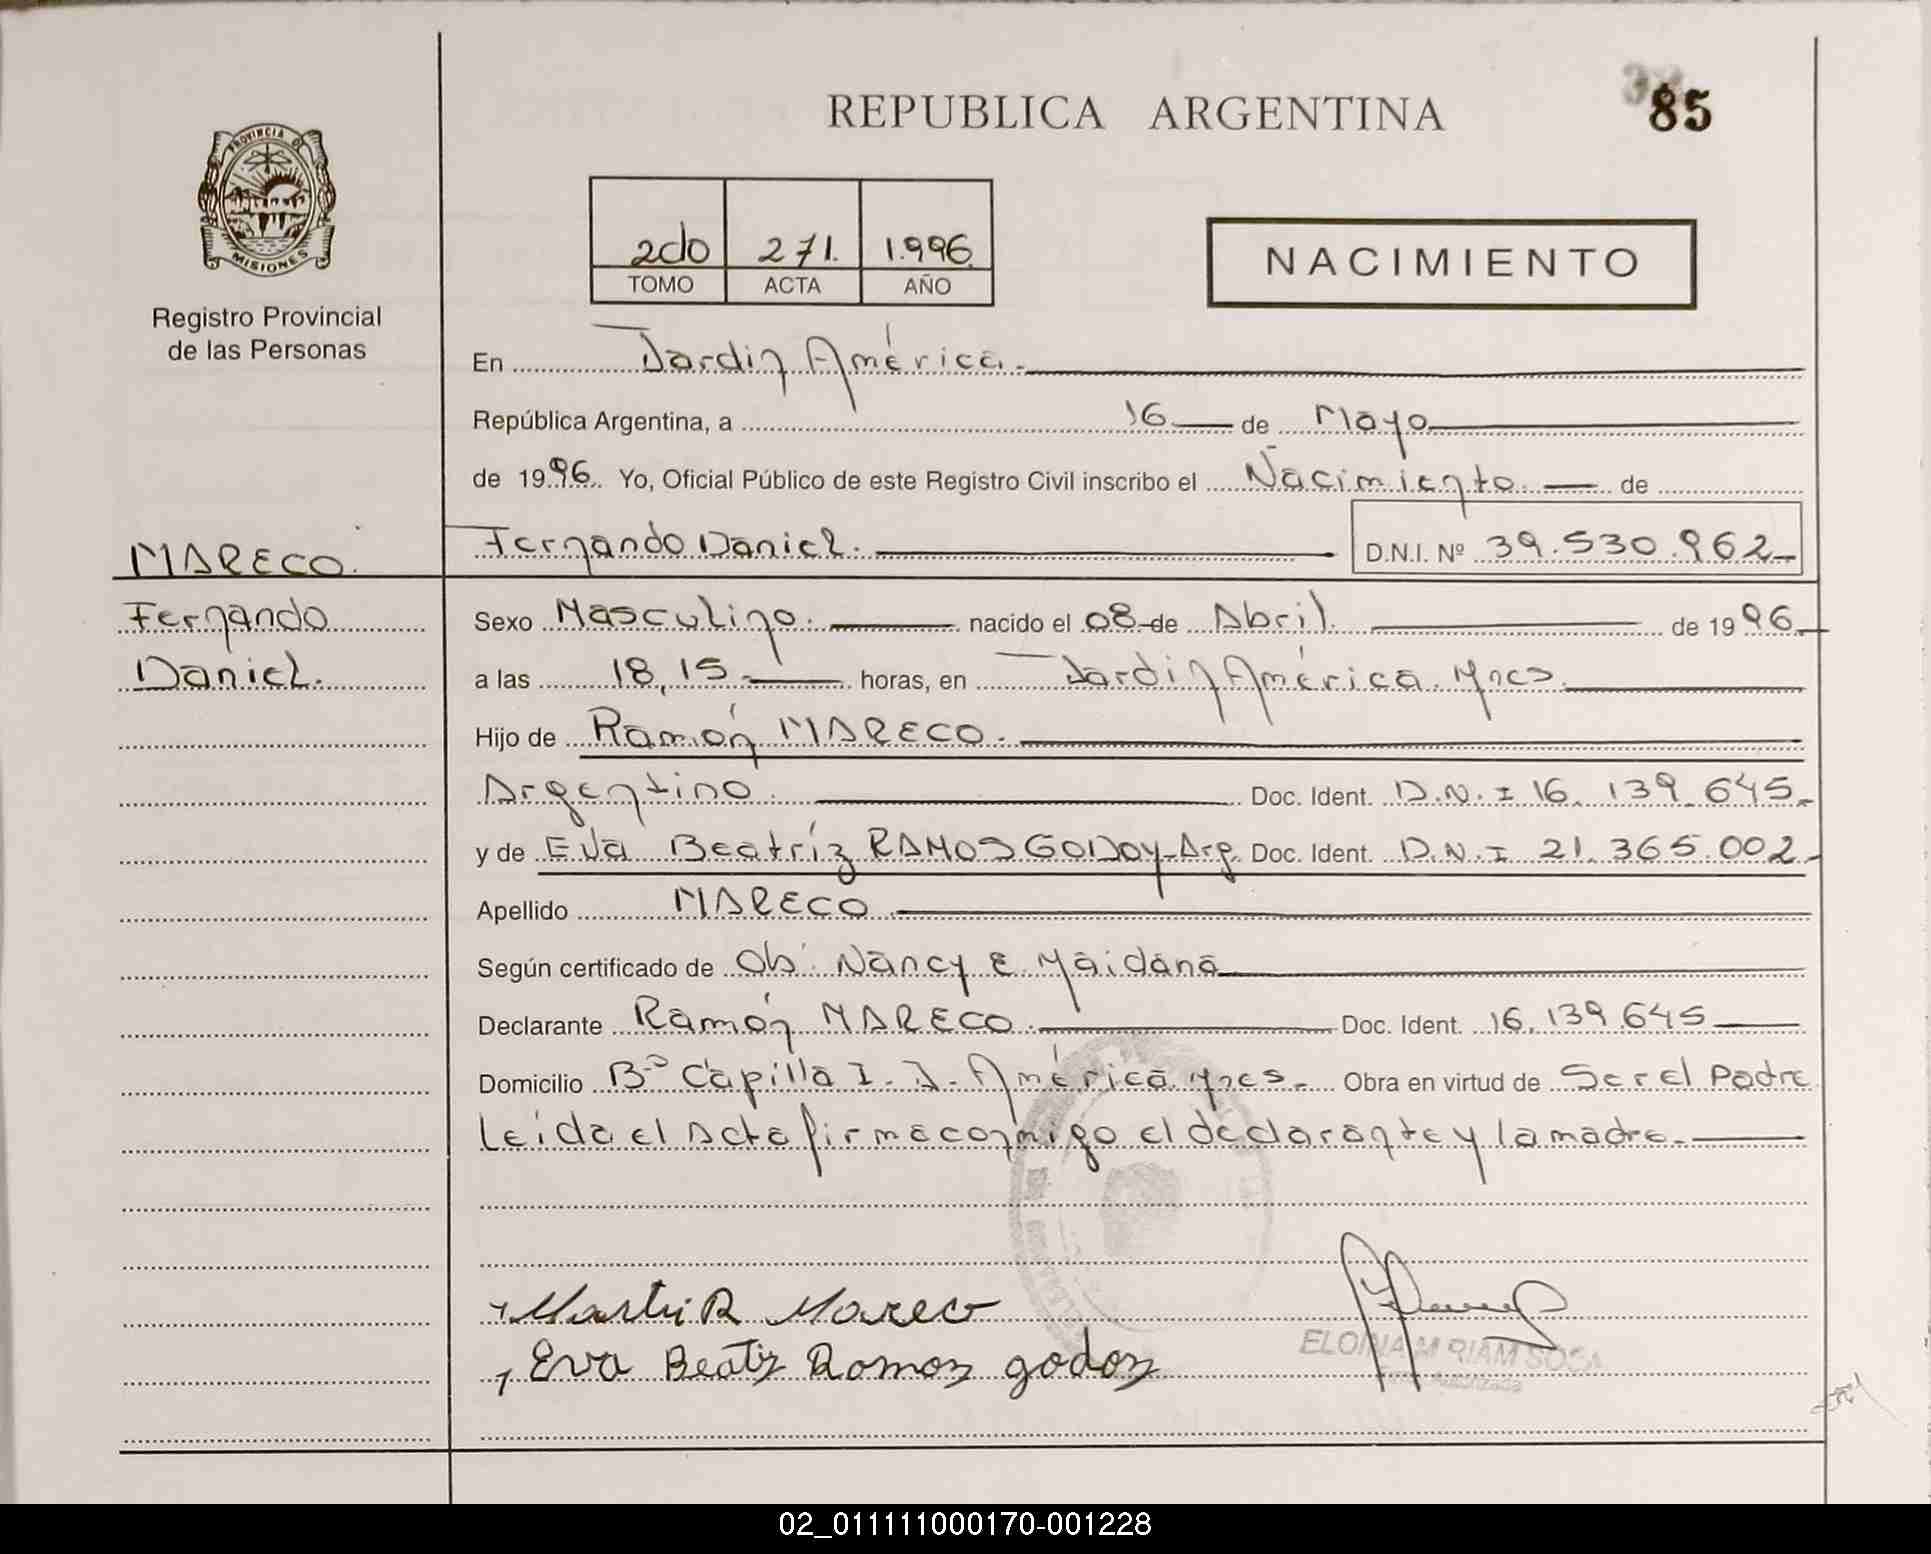 REPUBLICA ARGENTINA
85
PROVINCIA DE
MISIONES
Registro Provincial
de las Personas
2do 271. 1.996
TOMO ACTA AÑO
NACIMIENTO
En Jardin América.
República Argentina, a 16 de Mayo
de 1996. Yo, Oficial Público de este Registro Civil inscribo el Nacimiento de
MARECO.
Fernando Daniel. D.N.I. Nº 39.530.962
Fernando
Daniel.
Sexo Masculino. nacido el 08 de Abril. de 1996
a las 18,15 horas, en Jardin América. Mnes.
Hijo de Ramón MARECO.
Argentino. Doc. Ident. D.N.I 16.139.645.
y de Eva Beatríz RAMOS GODOY-Arg. Doc. Ident. D.N.I 21.365.002
Apellido MARECO
Según certificado de Ob. Nancy E Maidana
Declarante Ramón MARECO. Doc. Ident. 16.139.645
Domicilio Bº Capilla I. J. América Mnes. Obra en virtud de Ser el Padre
Leida el Acta firma conmigo el declarante y la madre.
Marti R Mareco
Eva Beatiz Ramoz godoz
ELOINA MIRIAM SOSA
02_011111000170-001228